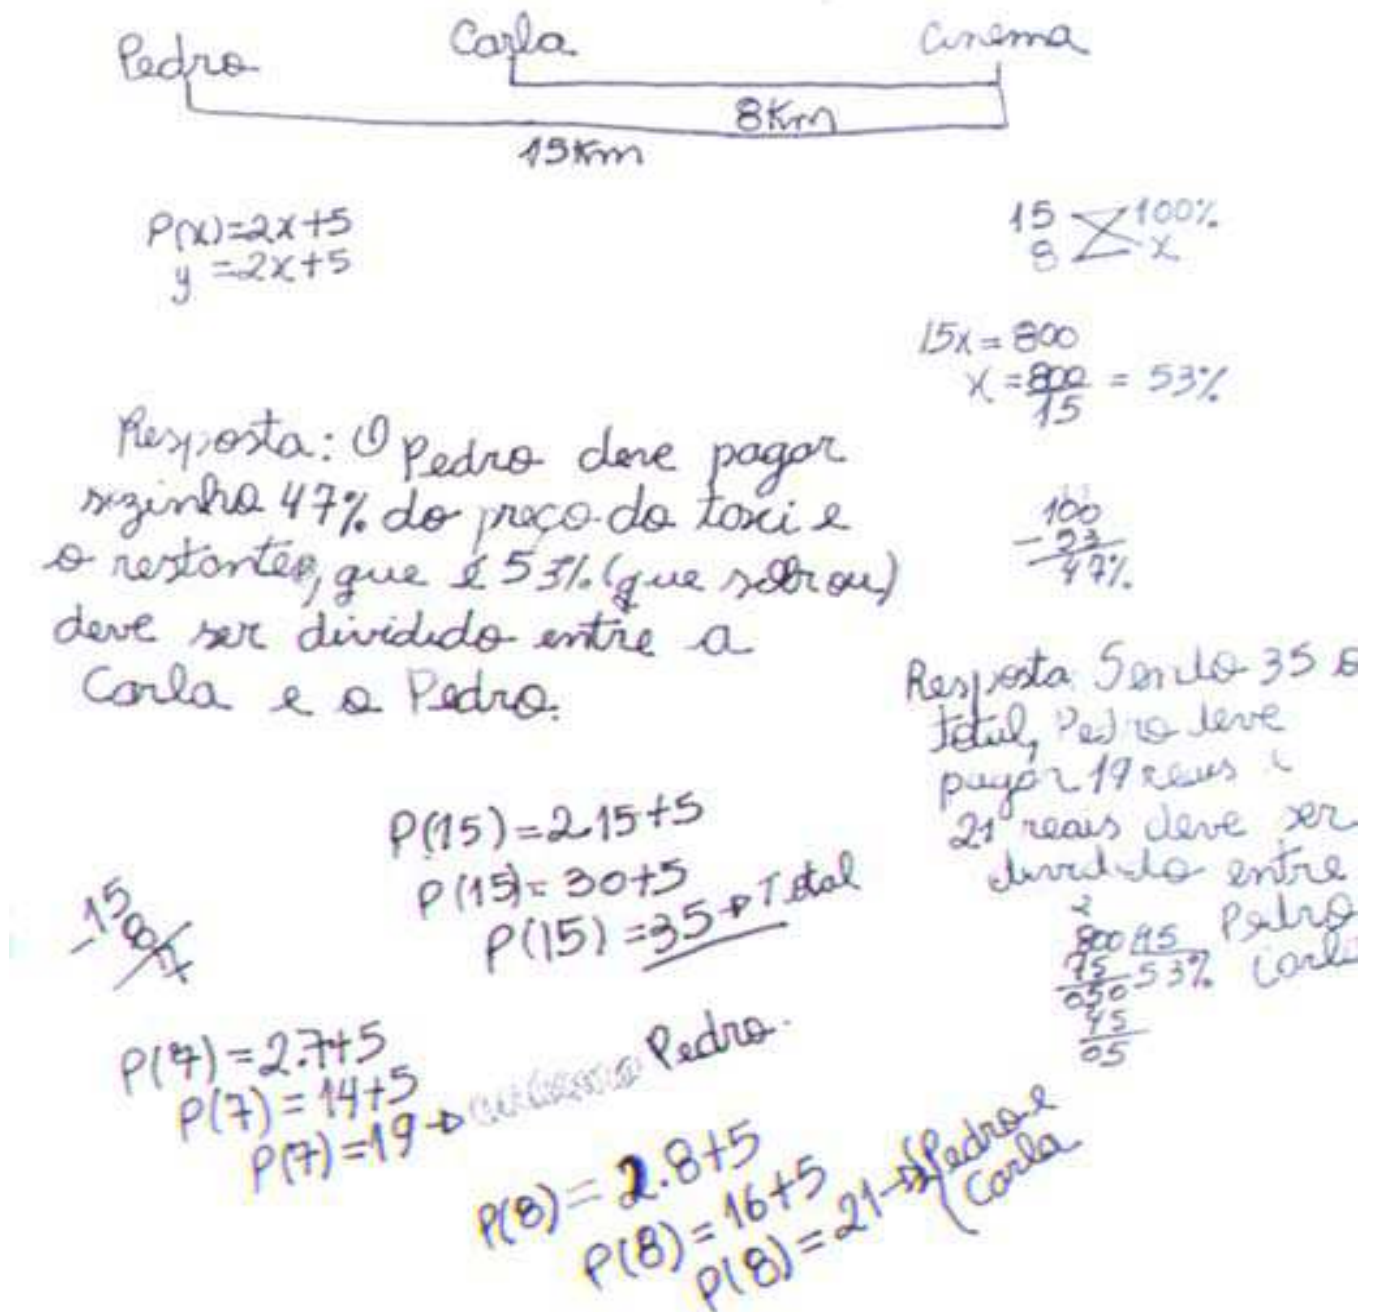 Pedro Carla Cinema
8Km
15Km
P(x)=2x+5
y =2x+5
15 100%
8 x
15x = 800
x = 800/15 = 53%
100
- 53
47%
Resposta: O Pedro deve pagar
sozinho 47% do preço do taxi e
o restante, que é 53% (que sobrou)
deve ser dividido entre a
Carla e o Pedro.
Resposta Sendo 35 o
total, Pedro deve
pagar 19 reais e
21 reais deve ser
dividido entre
Pedro
Carla
2
800 15
75 53%
050
45
05
P(15)=2.15+5
P(15)= 30+5
P(15) =35→Total
-15
P(7)=2.7+5
P(7)= 14+5
P(7)=19→ Pedro.
P(8)= 2.8+5
P(8)= 16+5
P(8)= 21→ Pedro e
Carla